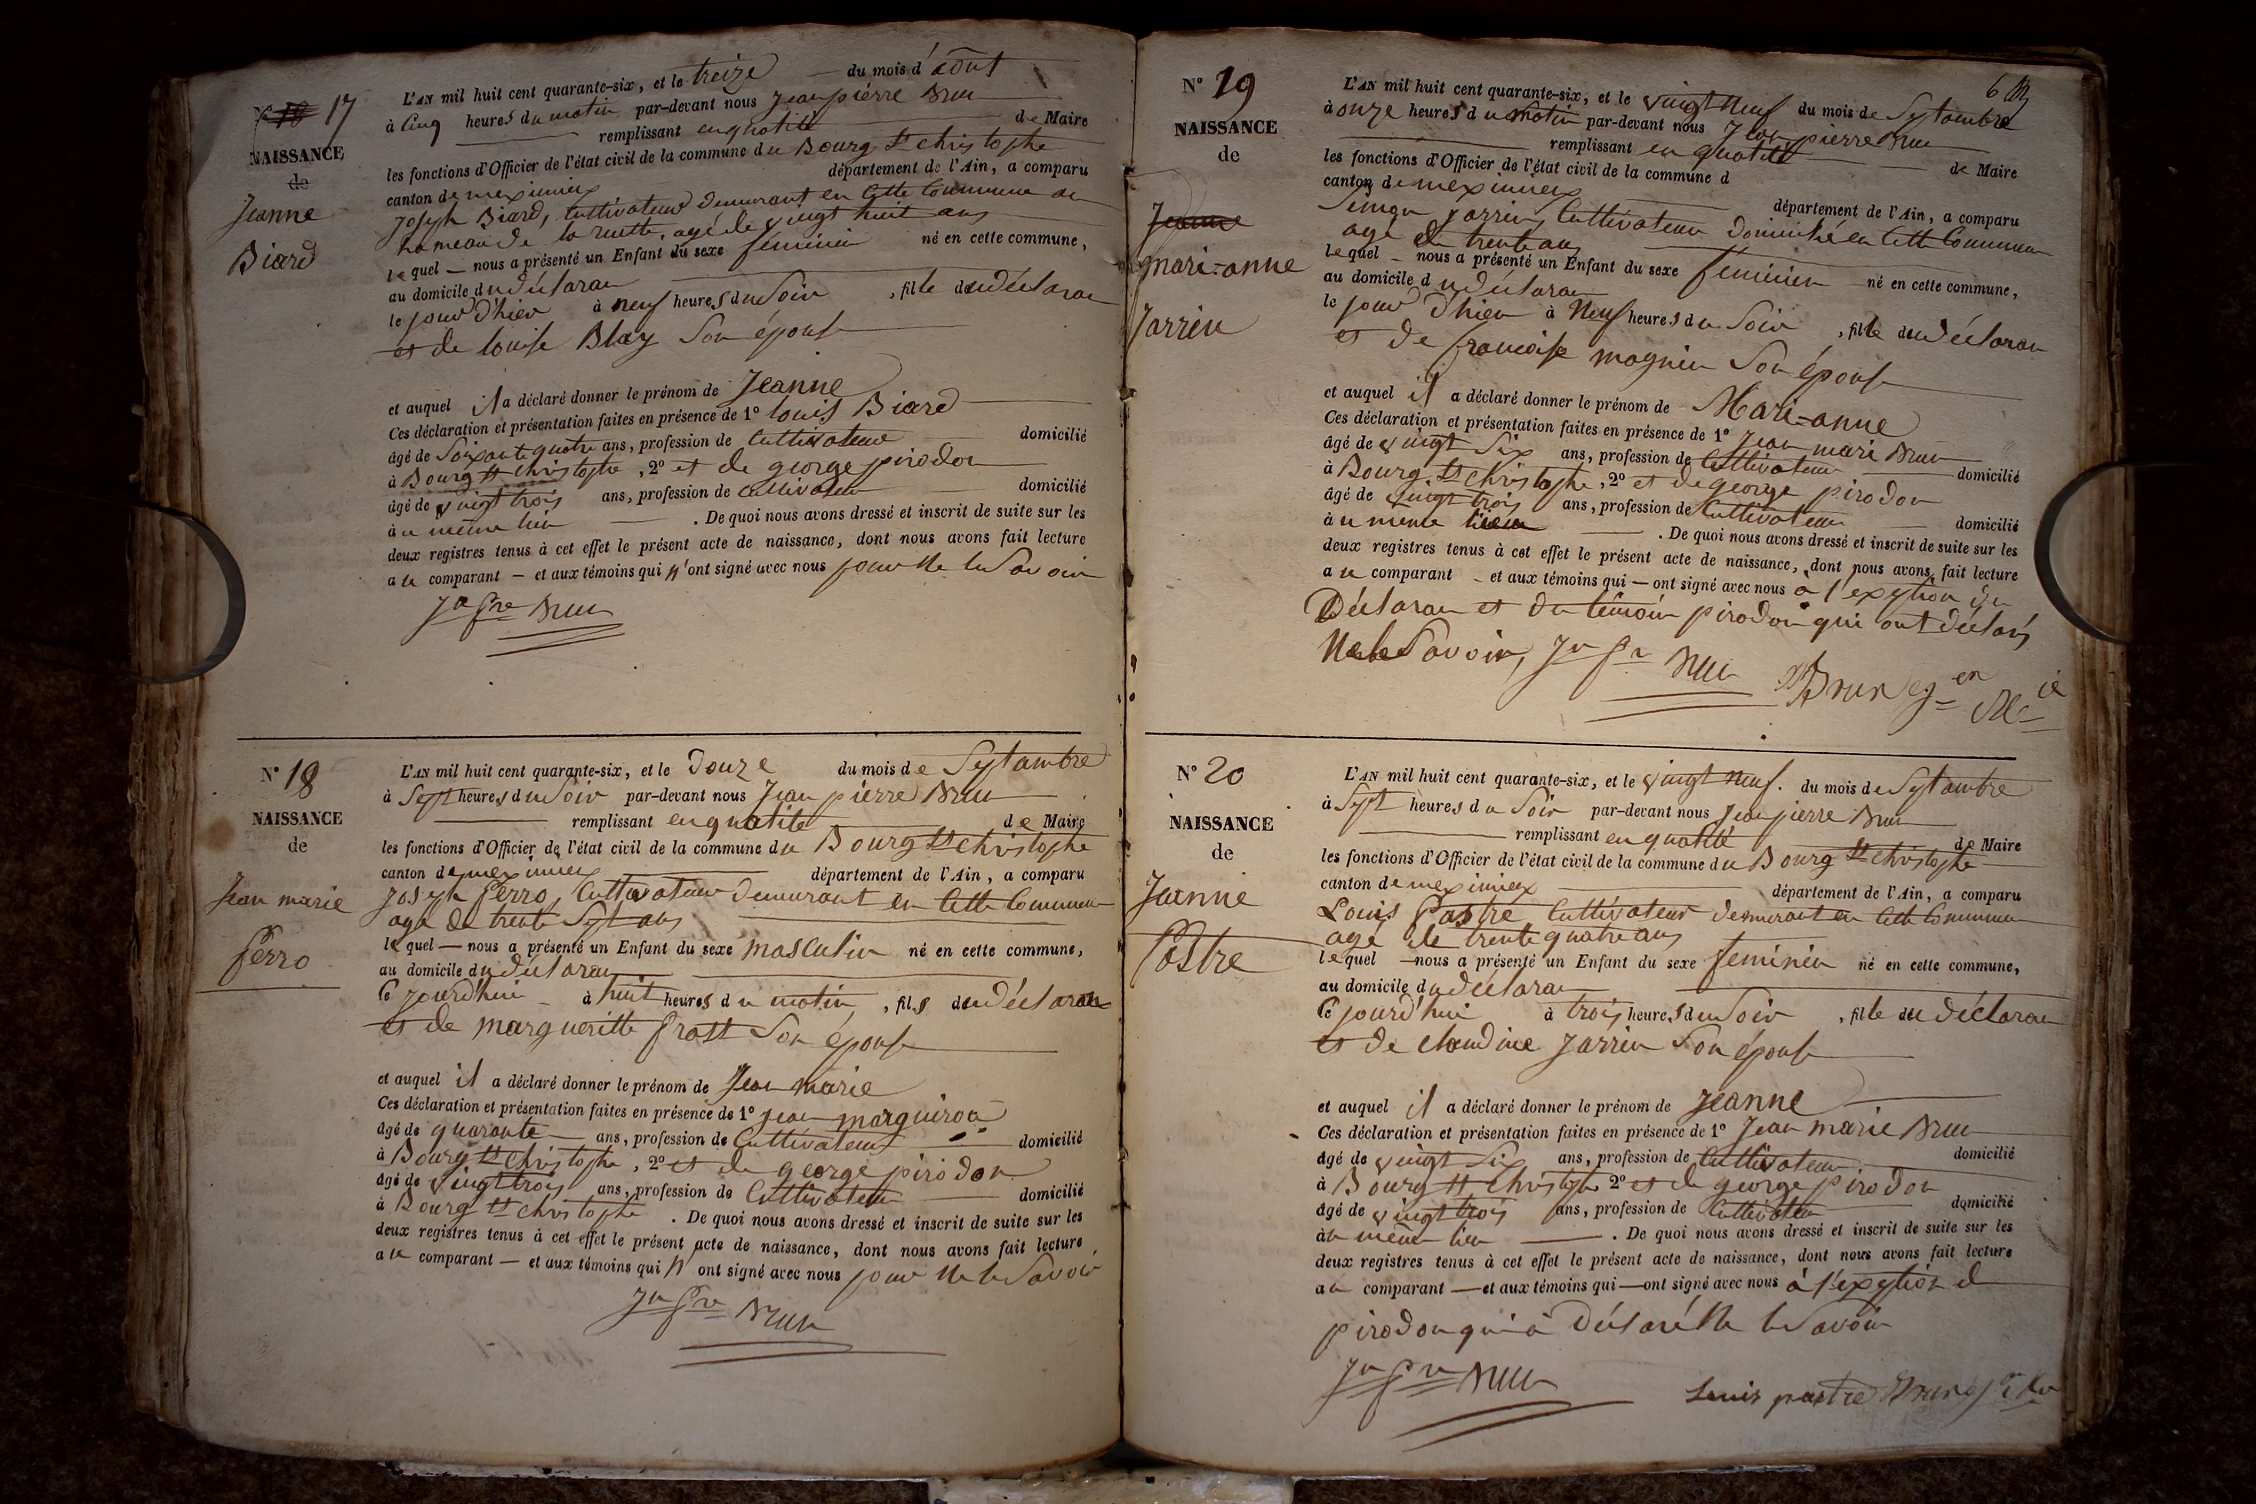 N° 18 17
NAISSANCE
de
Jeanne
Biard
L'AN mil huit cent quarante-six, et le treize du mois d'août
à Cinq heures du matin par-devant nous Jean pierre Brun
remplissant en qualité de Maire
les fonctions d'Officier de l'état civil de la commune du Bourg St christophe
canton de meximieux département de l'Ain, a comparu
Joseph Biard, Cultivateur demeurant en Cette Commune au
hameau de la ruette, agé de vingt huit ans
lequel — nous a présenté un Enfant du sexe féminin né en cette commune,
au domicile du déclaran
le jour d'hier à neuf heures du Soir, fille du déclaran
et de louise Blay Son épouse
et auquel il a déclaré donner le prénom de Jeanne
Ces déclaration et présentation faites en présence de 1° louis Biard
âgé de Soixante quatre ans, profession de Cultivateur domicilié
à Bourg St christophe, 2° et de george pirodon
âgé de vingt trois ans, profession de Cultivateur domicilié
à u même lieu. De quoi nous avons dressé et inscrit de suite sur les
deux registres tenus à cet effet le présent acte de naissance, dont nous avons fait lecture
au comparant — et aux témoins qui n'ont signé avec nous pour ne le Savoir
Jn Pre Brun
N° 18
NAISSANCE
de
Jean marie
ferro
L'AN mil huit cent quarante-six, et le douze du mois de Septambre
à Sept heures du Soir par-devant nous Jean pierre Brun
remplissant en qualité de Maire
les fonctions d'Officier de l'état civil de la commune du Bourg St christophe
canton de meximieux département de l'Ain, a comparu
Joseph ferro, Cultivateur demeurant en Cette Commune
agé de trente Sept ans
lequel — nous a présenté un Enfant du sexe masculin né en cette commune,
au domicile du déclaran
Ce jourd'hui à huit heures du matin, fils du déclaran
et de margueritte frost Son épouse
et auquel il a déclaré donner le prénom de Jean marie
Ces déclaration et présentation faites en présence de 1° Jean
âgé de quarante ans, profession de Cultivateur domicilié
à Bourg St christophe, 2° et de george pirodon
âgé de vingt trois ans, profession de Cultivateur domicilié
à Bourg St christophe. De quoi nous avons dressé et inscrit de suite sur les
deux registres tenus à cet effet le présent acte de naissance, dont nous avons fait lecture
au comparant — et aux témoins qui n'ont signé avec nous pour ne le Savoir
Jn Pre Brun
6
N° 19
NAISSANCE
de
Jeanne
mari-anne
Jarrin
L'AN mil huit cent quarante-six, et le vingt neuf du mois de Septambre
à onze heures du matin par-devant nous Jean pierre Brun
remplissant en qualité de Maire
les fonctions d'Officier de l'état civil de la commune d
canton de meximieux département de l'Ain, a comparu
Simon Jarrin, Cultivateur domicilié en Cette Commune
agé de trente ans
lequel — nous a présenté un Enfant du sexe féminin né en cette commune,
au domicile du déclaran
le jour d'hier à Neuf heures du Soir, fille du déclaran
et de francoise magnin Son épouse
et auquel il a déclaré donner le prénom de Mari-anne
Ces déclaration et présentation faites en présence de 1° Jean mari Brun
âgé de vingt Six ans, profession de Cultivateur domicilié
à Bourg St christophe, 2° et de george pirodon
âgé de vingt trois ans, profession de Cultivateur domicilié
à u même lieu. De quoi nous avons dressé et inscrit de suite sur les
deux registres tenus à cet effet le présent acte de naissance, dont nous avons fait lecture
au comparant — et aux témoins qui — ont signé avec nous à l'exeption du
Déclaran et du témoin pirodon qui ont déclarés
Ne le Savoir, Jn Pre Brun Brun
N° 20
NAISSANCE
de
Jeanne
Pastre
L'AN mil huit cent quarante-six, et le vingt neuf. du mois de Septambre
à Sept heures du Soir par-devant nous Jean pierre Brun
remplissant en qualité de Maire
les fonctions d'Officier de l'état civil de la commune du Bourg St christophe
canton de meximieux département de l'Ain, a comparu
Louis Pastre Cultivateur demeurant en Cette Commune
agé de trente quatre ans
lequel — nous a présenté un Enfant du sexe féminin né en cette commune,
au domicile du déclaran
Ce jourd'hui à trois heures du Soir, fille du déclaran
et de claudine Jarrin Son épouse
et auquel il a déclaré donner le prénom de Jeanne
Ces déclaration et présentation faites en présence de 1° Jean marie Brun
âgé de vingt Six ans, profession de Cultivateur domicilié
à Bourg St christophe 2° et de george pirodon
âgé de vingt trois ans, profession de Cultivateur domicilié
à u même lieu. De quoi nous avons dressé et inscrit de suite sur les
deux registres tenus à cet effet le présent acte de naissance, dont nous avons fait lecture
au comparant — et aux témoins qui — ont signé avec nous à l'exeption d
pirodon qui à Déclaré Ne le Savoir
Jn Pre Brun
Louis pastre Brun